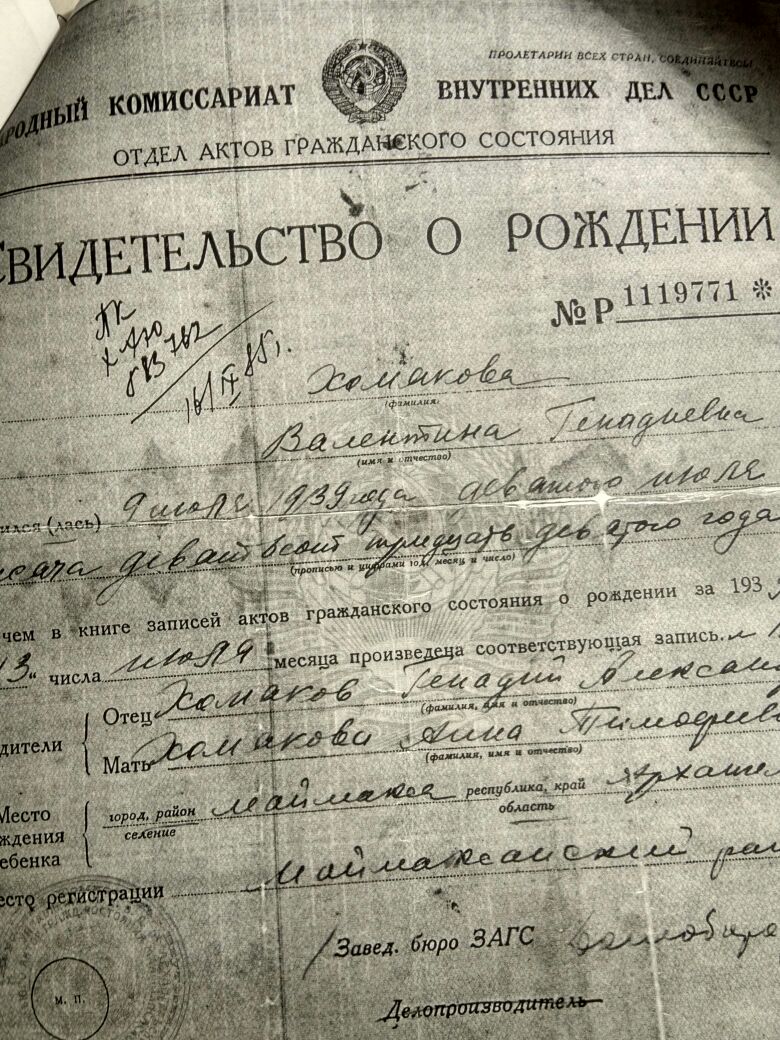 ПРОЛЕТАРИИ ВСЕХ СТРАН, СОЕДИНЯЙТЕСЬ!
РОДНЫЙ КОМИССАРИАТ ВНУТРЕННИХ ДЕЛ СССР
ОТДЕЛ АКТОВ ГРАЖДАНСКОГО СОСТОЯНИЯ
СВИДЕТЕЛЬСТВО О РОЖДЕНИИ
№ Р 1119771 *
16/IX 85г.
Хомакова
(фамилия)
Валентина Генадиевна
(имя и отчество)
ился (лась) 9 июля 1939 года девятого июля
сяча девятьсот тридцать девятого года
(прописью и цифрами год, месяц и число)
чем в книге записей актов гражданского состояния о рождении за 193
13 " числа июля месяца произведена соответствующая запись.
дители
Отец Хомаков Генадий Алексан
(фамилия, имя и отчество)
Мать Хомакова Анна Тимофеев
(фамилия, имя и отчество)
Место
ждения
ебенка
город, район Маймакса республика, край Архангел
селение область
есто регистрации Маймаксанский рай
Завед. бюро ЗАГС
м. п.
Делопроизводитель